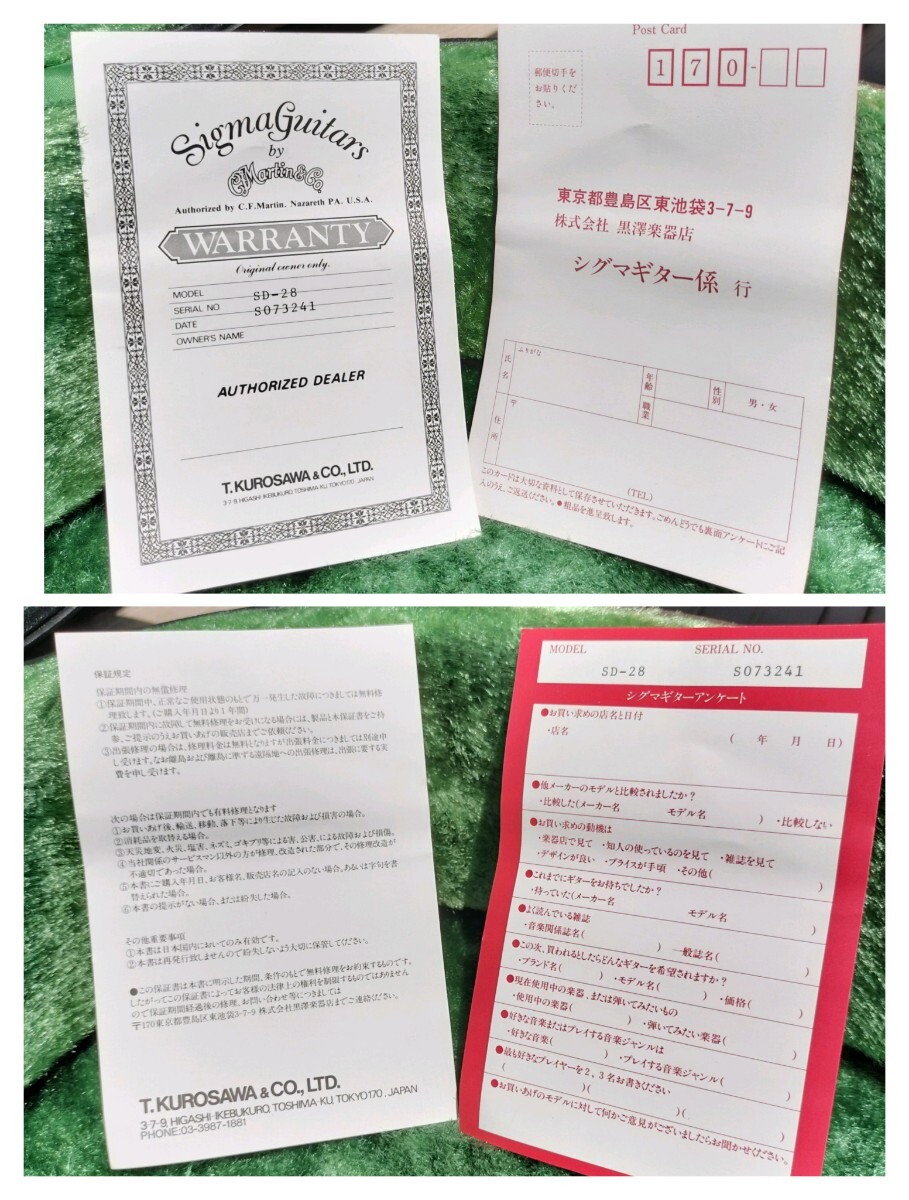 Sigma Guitars
by
C.F. Martin & Co.
Authorized by C.F.Martin. Nazareth PA. U.S.A.
WARRANTY
Original owner only.
MODEL SD-28
SERIAL NO. S073241
DATE
OWNER'S NAME
AUTHORIZED DEALER
T.KUROSAWA & CO., LTD.
3-7-9, HIGASHI-IKEBUKURO, TOSHIMA-KU, TOKYO170, JAPAN
Post Card
郵便切手を
お貼りくだ
さい。
170-
東京都豊島区東池袋3-7-9
株式会社 黒澤楽器店
シグマギター係 行
ふりがな
氏名
年齢
性別
男・女
職業
〒
住所
(TEL)
このカードは大切な資料として保存させていただきます。ごめんどうでも裏面アンケートにご記
入のうえ、ご返送ください。●粗品を進呈致します。
保証規定
保証期間内の無償修理
①保証期間中、正常なご使用状態のもとで万一発生した故障につきましては無料修
理致します。(ご購入年月日より1年間)
②保証期間内に故障して無料修理をお受けになる場合には、製品と本保証書をご持
参、ご提示のうえお買いあげの販売店までご依頼ください。
③出張修理の場合は、修理料金は無料となりますが出張料金につきましては別途申
し受けます。なお離島及び離島に準ずる遠隔地への出張修理は、出張に要する実
費を申し受けます。
次の場合は保証期間内でも有料修理となります
①お買いあげ後、輸送、移動、落下等により生じた故障および損害の場合。
②消耗品を取替える場合。
③天災地変、火災、塩害、ネズミ、ゴキブリ等による害、公害、による故障および損傷。
④当社関係のサービスマン以外の方が修理、改造された部分で、その修理改造が
不適切であった場合。
⑤本書にご購入年月日、お客様名、販売店名の記入のない場合、あるいは字句を書
替えられた場合。
⑥本書の提示がない場合、または紛失した場合。
その他重要事項
①本書は日本国内においてのみ有効です。
②本書は再発行致しませんので紛失しないよう大切に保管してください。
●この保証書は本書に明示した期間、条件のもとで無料修理をお約束するものです。
したがってこの保証書によってお客様の法律上の権利を制限するものではありません
ので保証期間経過後の修理、お問い合わせ等につきましては
〒170東京都豊島区東池袋3-7-9 株式会社黒澤楽器店までご連絡ください。
T.KUROSAWA & CO., LTD.
3-7-9, HIGASHI-IKEBUKURO, TOSHIMA-KU, TOKYO170, JAPAN
PHONE:03-3987-1881
MODEL SERIAL NO.
SD-28 S073241
シグマギターアンケート
●お買い求めの店名と日付
・店名 ( 年 月 日)
●他メーカーのモデルと比較されましたか?
・比較した(メーカー名 モデル名 ) ・比較しない
●お買い求めの動機は
・楽器店で見て ・知人の使っているのを見て ・雑誌を見て
・デザインが良い ・プライスが手頃 ・その他( )
●これまでにギターをお持ちでしたか?
・持っていた(メーカー名 モデル名 )
●よく読んでいる雑誌
・音楽関係誌名( ) 一般誌名( )
●この次、買われるとしたらどんなギターを希望されますか?
・ブランド名( ) ・モデル名( ) ・価格( )
●現在使用中の楽器、または弾いてみたいもの
・使用中の楽器( ) ・弾いてみたい楽器( )
●好きな音楽またはプレイする音楽ジャンルは
・好きな音楽( ) ・プレイする音楽ジャンル( )
●最も好きなプレイヤーを2,3名お書きください
( )( )( )
●お買いあげのモデルに対して何かご意見がございましたらお聞かせください。